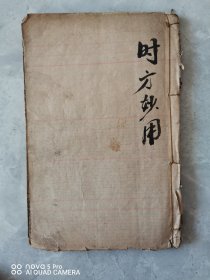 时方妙用
nova 5 Pro
AI QUAD CAMERA